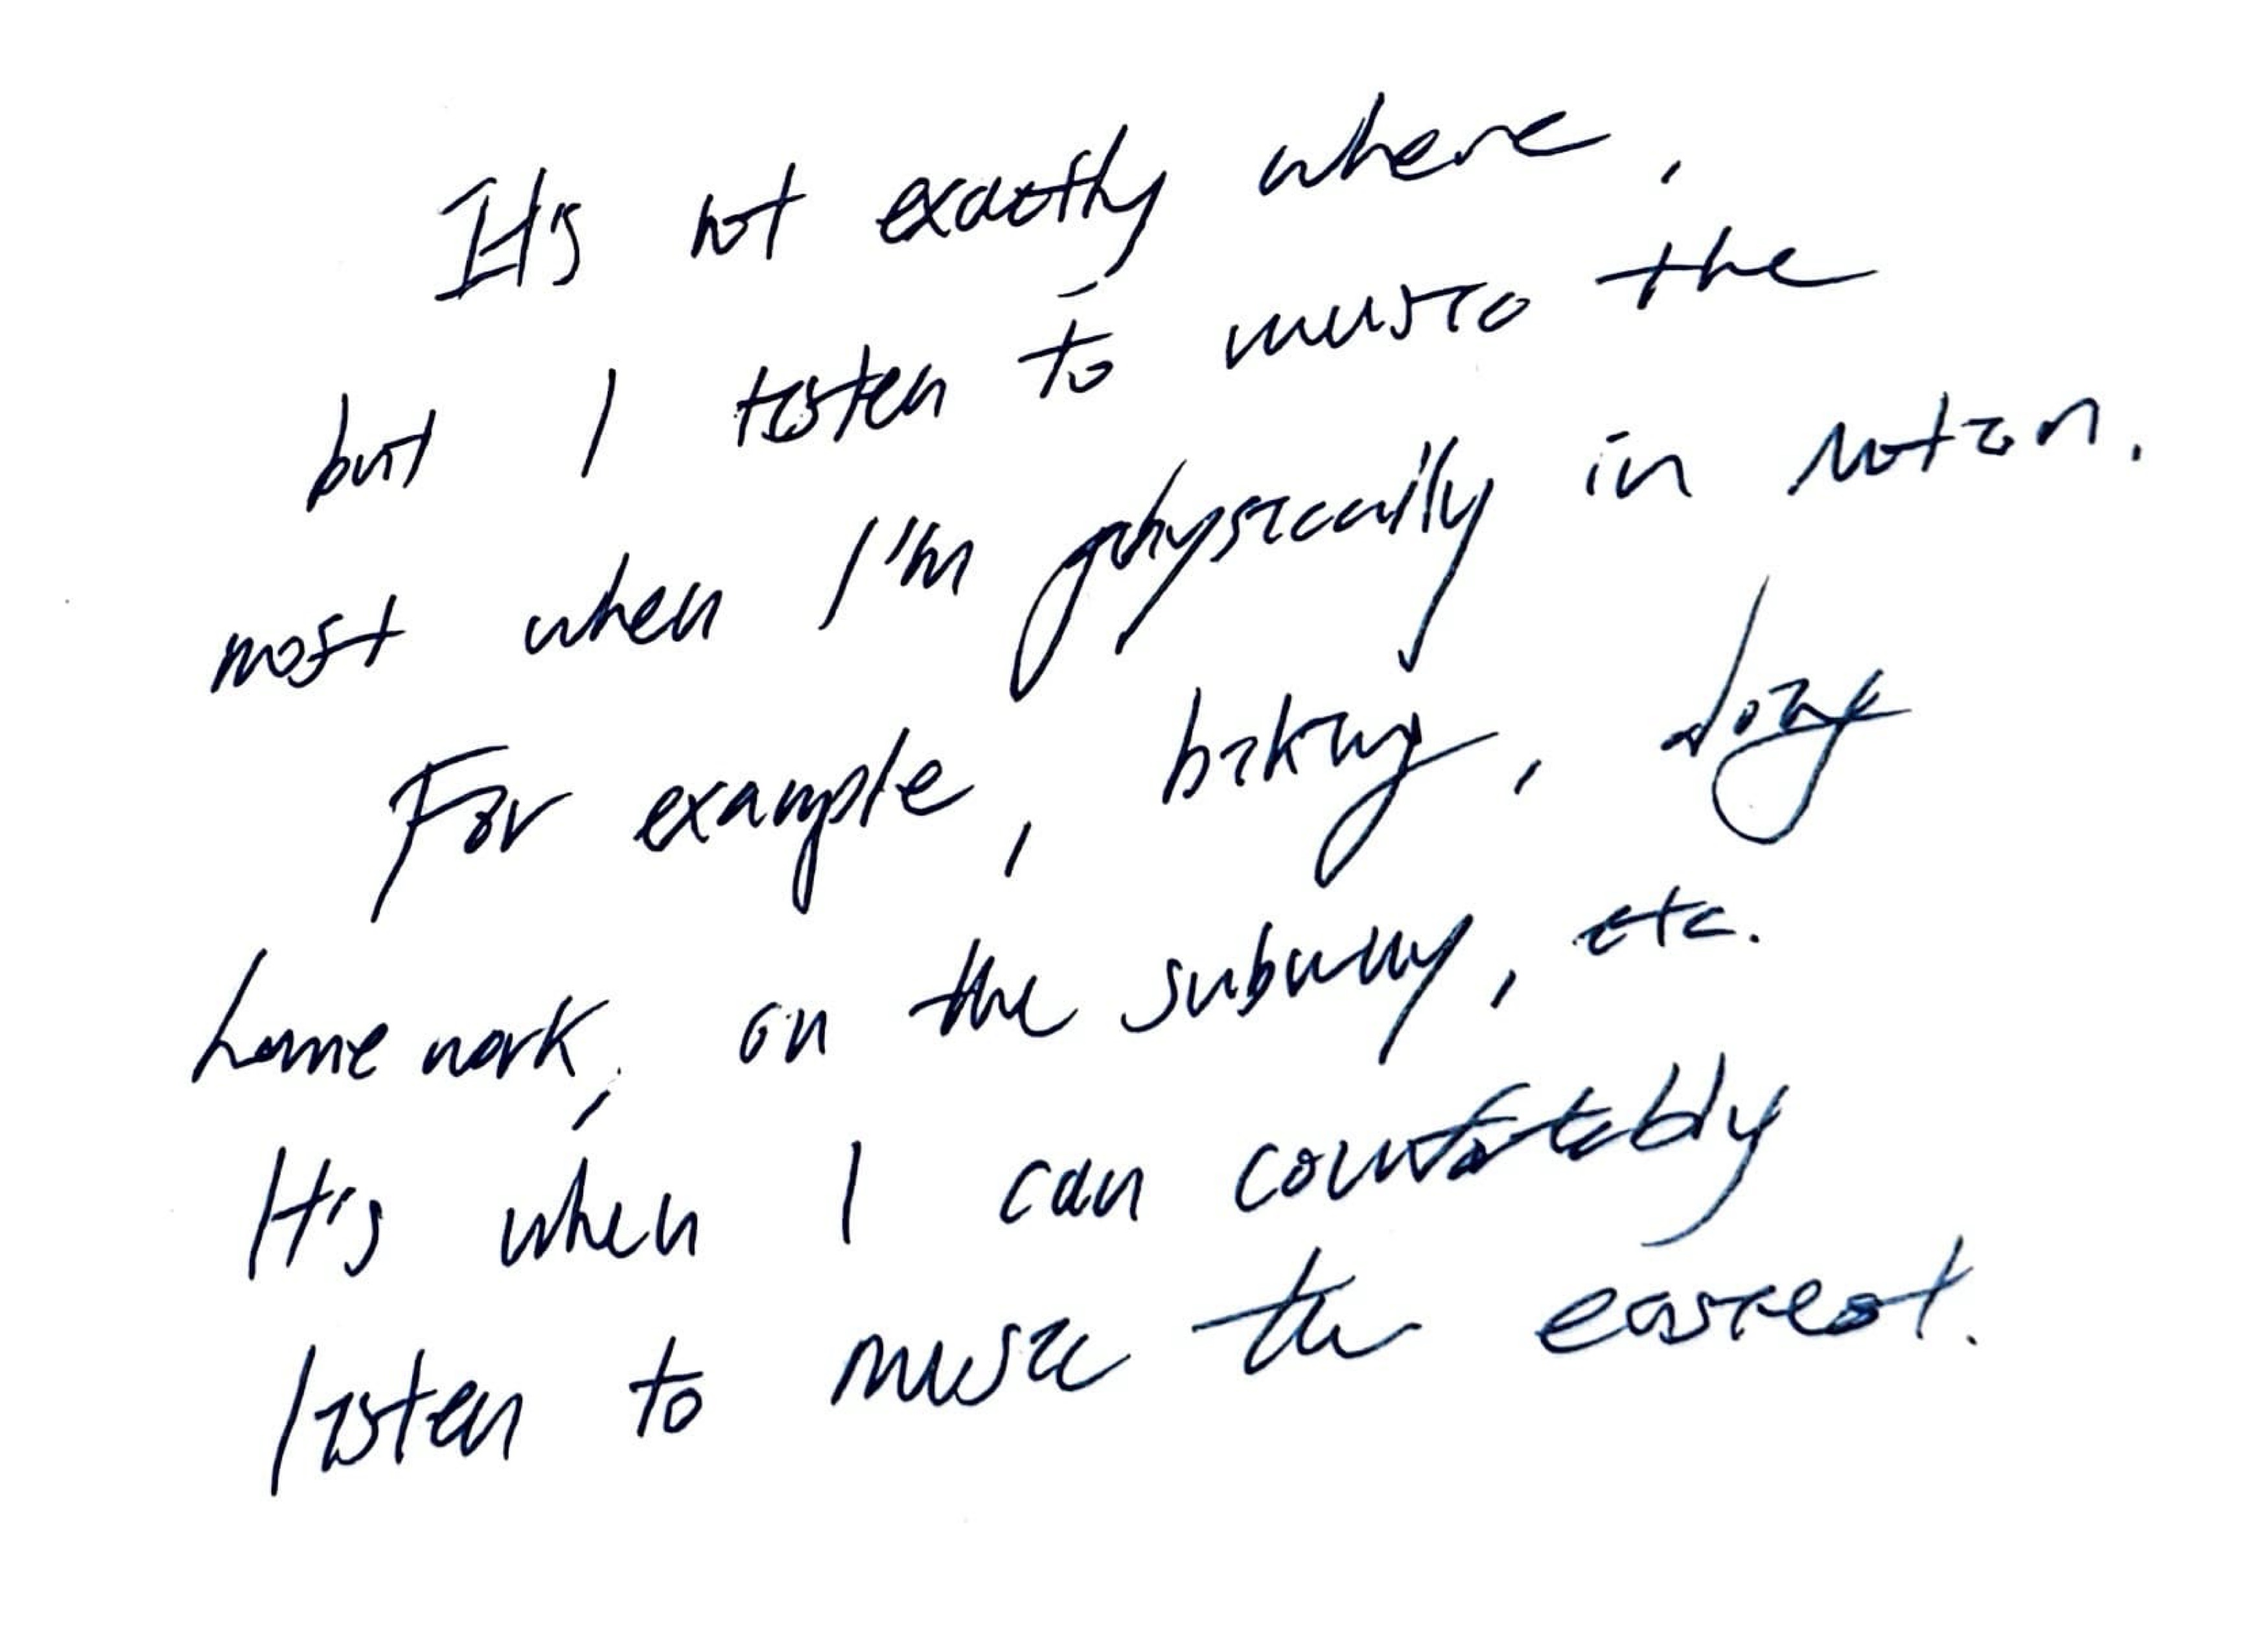 It's not exactly where,
but I listen to music the
most when I'm physically in motion.
For example, biking, doing
homework, on the subway, etc.
It's when I can comfortably
listen to music the easiest.